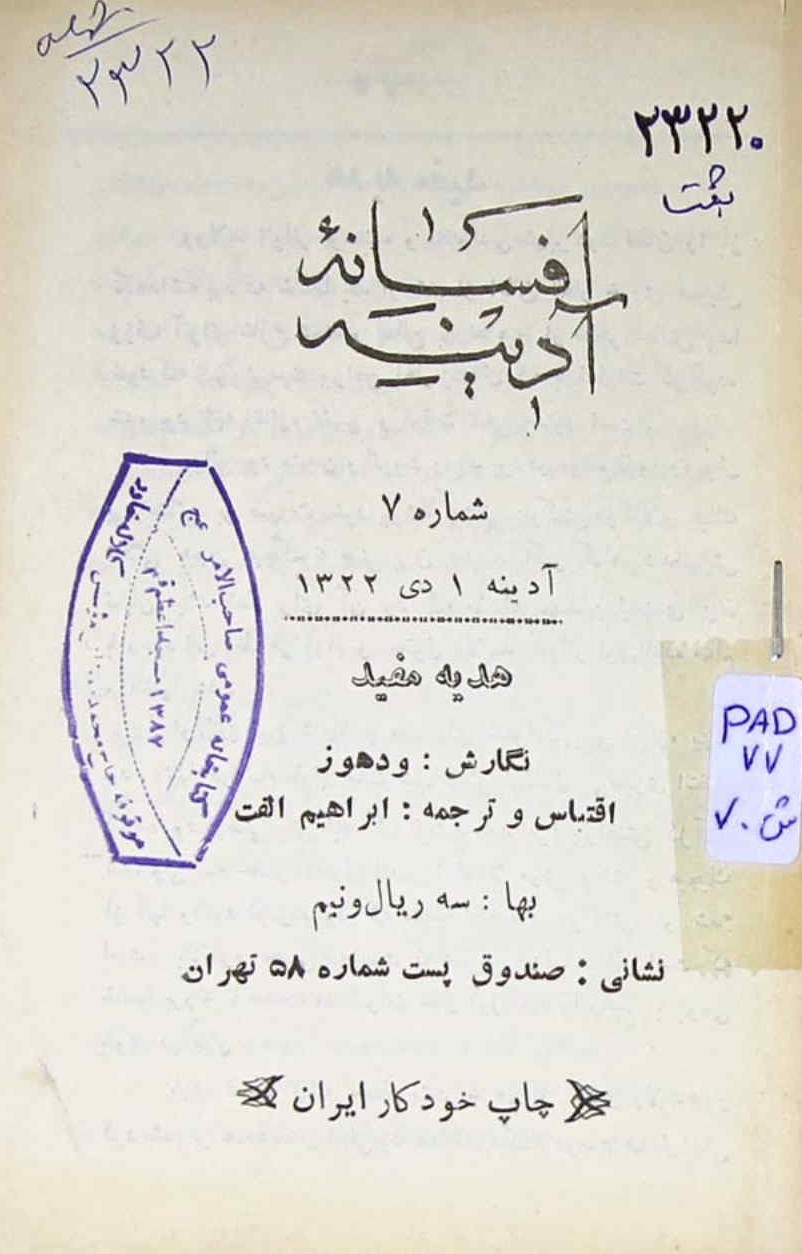 ۲۳۲۲
۲۳۲۲۰
ثبت
افسانهٔ
آدینه
شماره ۷
آدینه ۱ دی ۱۳۲۲
هدیه مفید
نگارش : ودهوز
اقتباس و ترجمه : ابراهیم الفت
بها : سه ریال‌ونیم
نشانی : صندوق پست شماره ۵۸ تهران
چاپ خودکار ایران
کتابخانه عمومی صاحب‌الامر عج
۱۳۸۷ مسجد اعظم قم
PAD
۷۷
ش. ۷